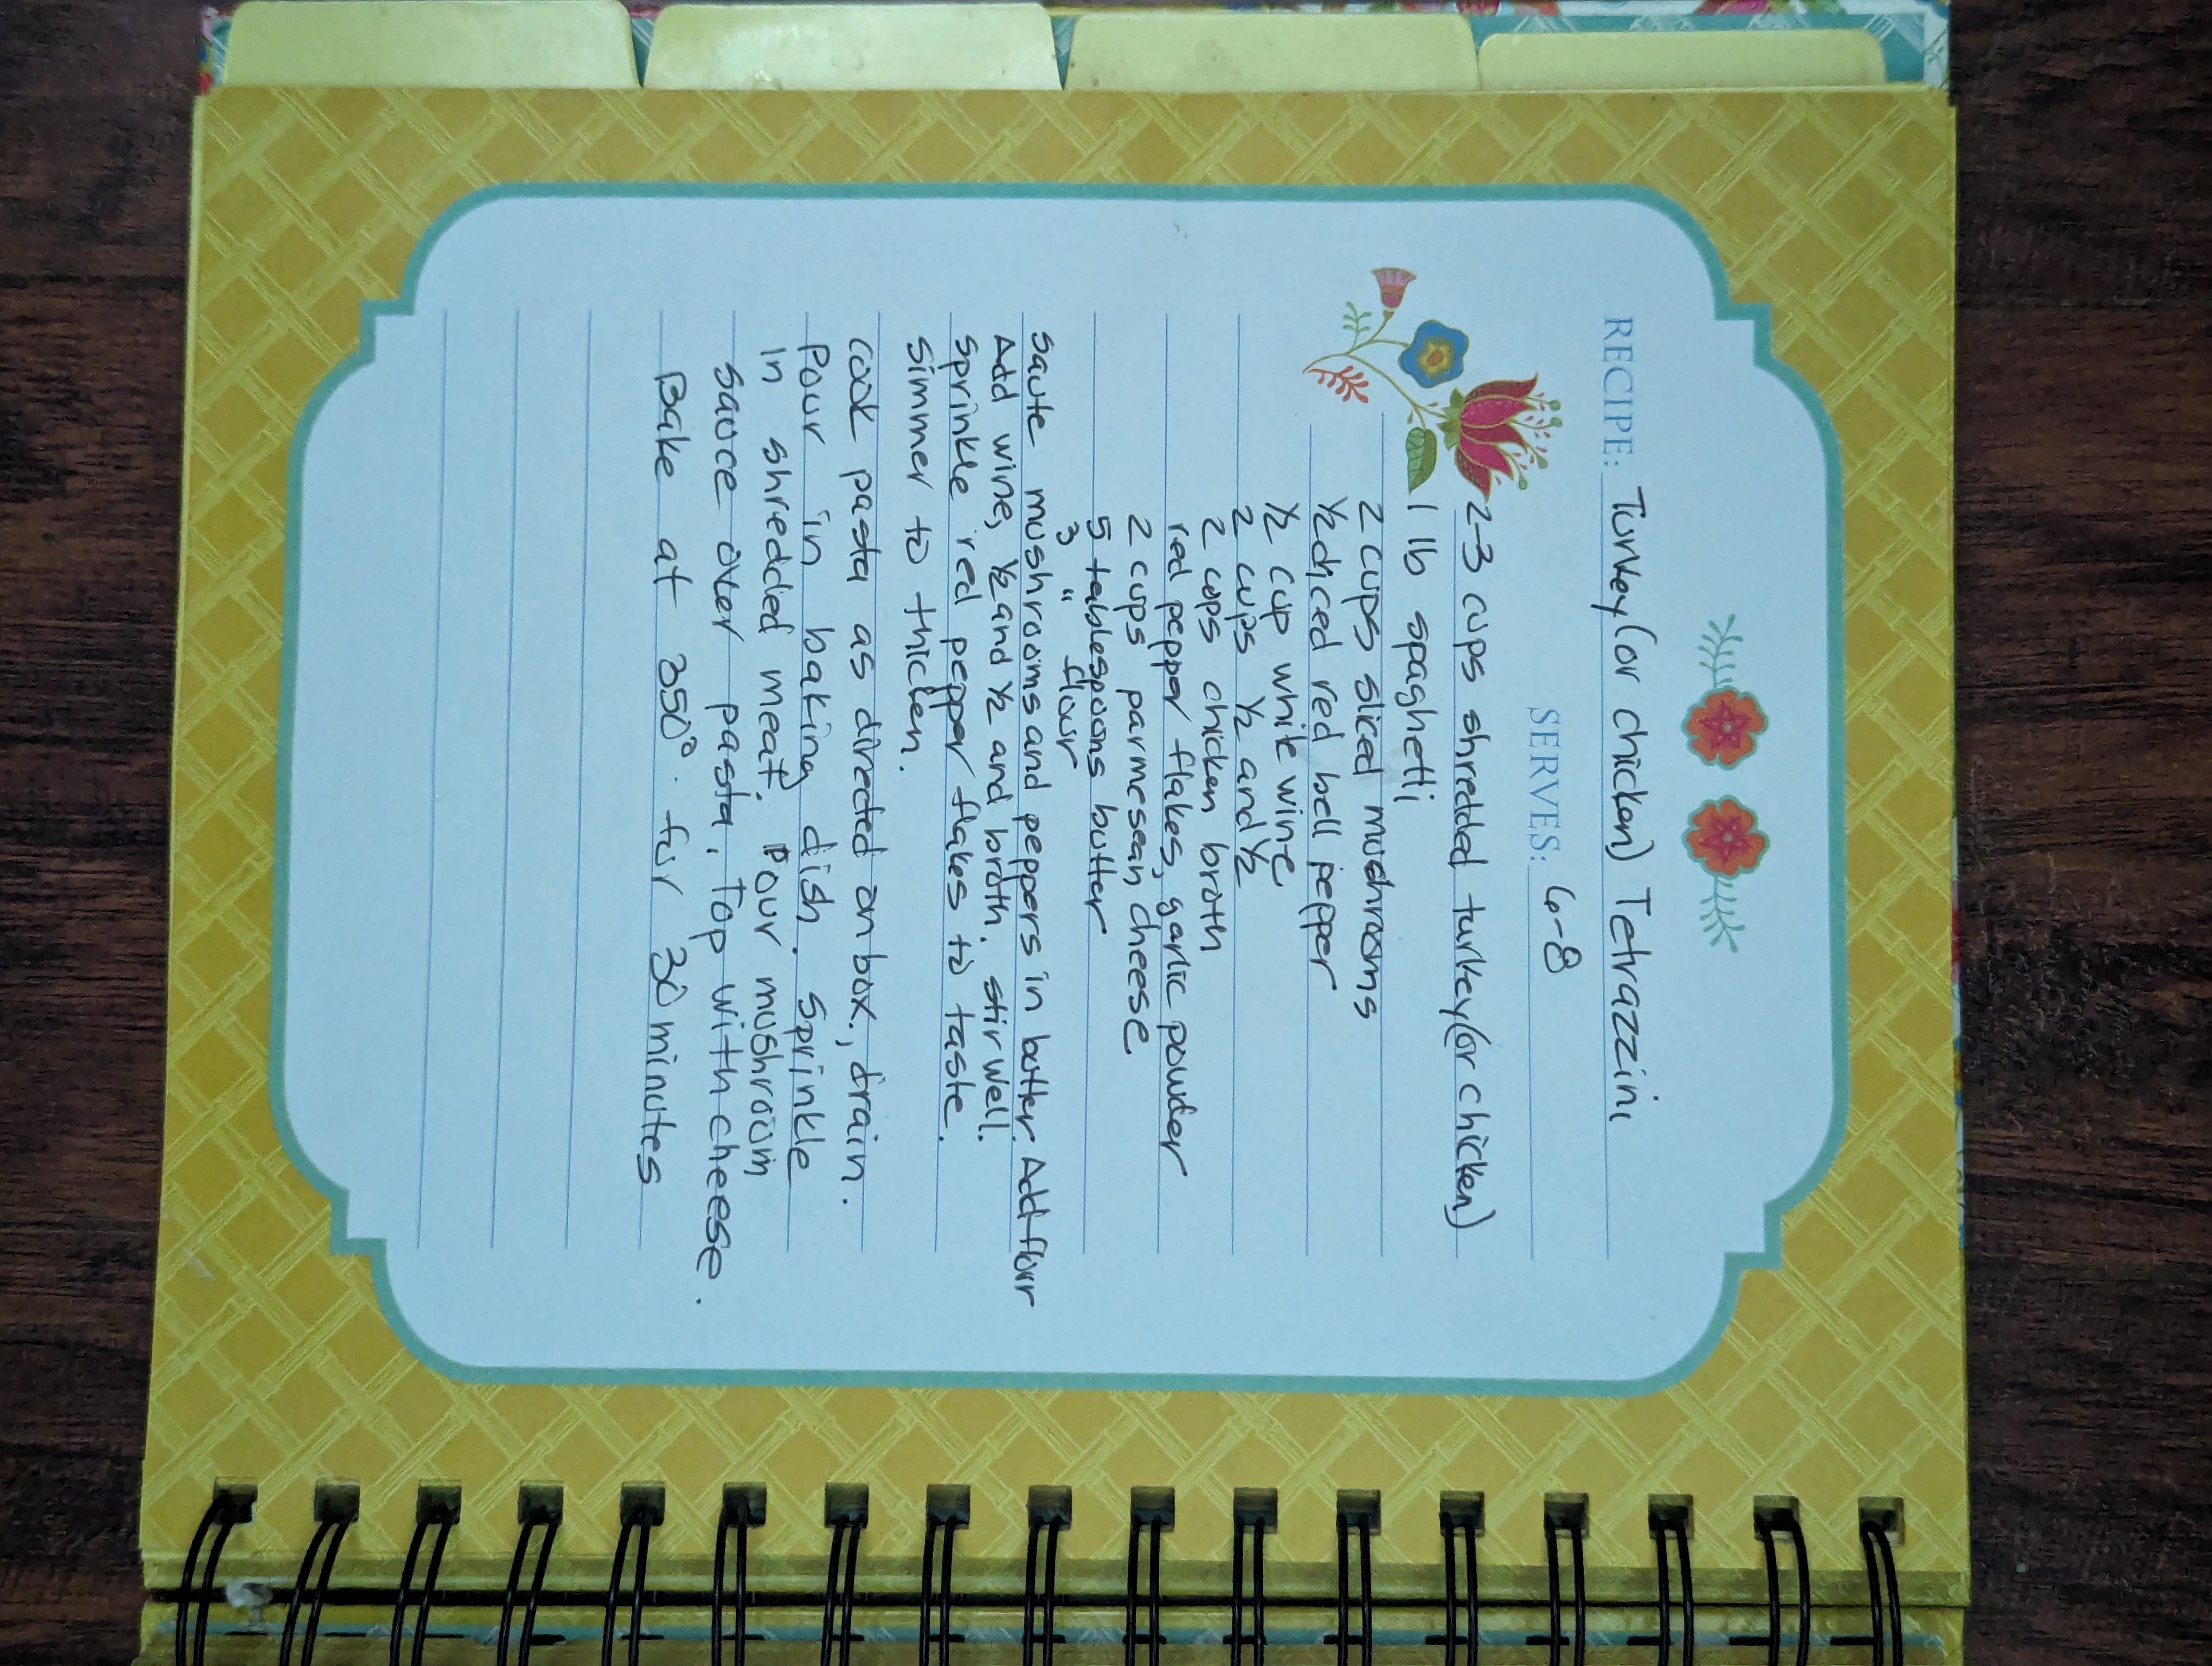 RECIPE: Turkey (or chicken) Tetrazzini
SERVES: 6-8
2-3 cups shredded turkey (or chicken)
1 lb spaghetti
2 cups sliced mushrooms
½ diced red bell pepper
½ cup white wine
2 cups ½ and ½
2 cups chicken broth
red pepper flakes, garlic powder
2 cups parmesean cheese
5 tablespoons butter
3 " flour
Saute mushrooms and peppers in butter. Add flour
Add wine, ½ and ½ and broth. stir well.
Sprinkle red pepper flakes to taste.
Simmer to thicken.
Cook pasta as directed on box, drain.
Pour in baking dish. Sprinkle
in shredded meat. Pour mushroom
sauce over pasta. Top with cheese.
Bake at 350°. for 30 minutes